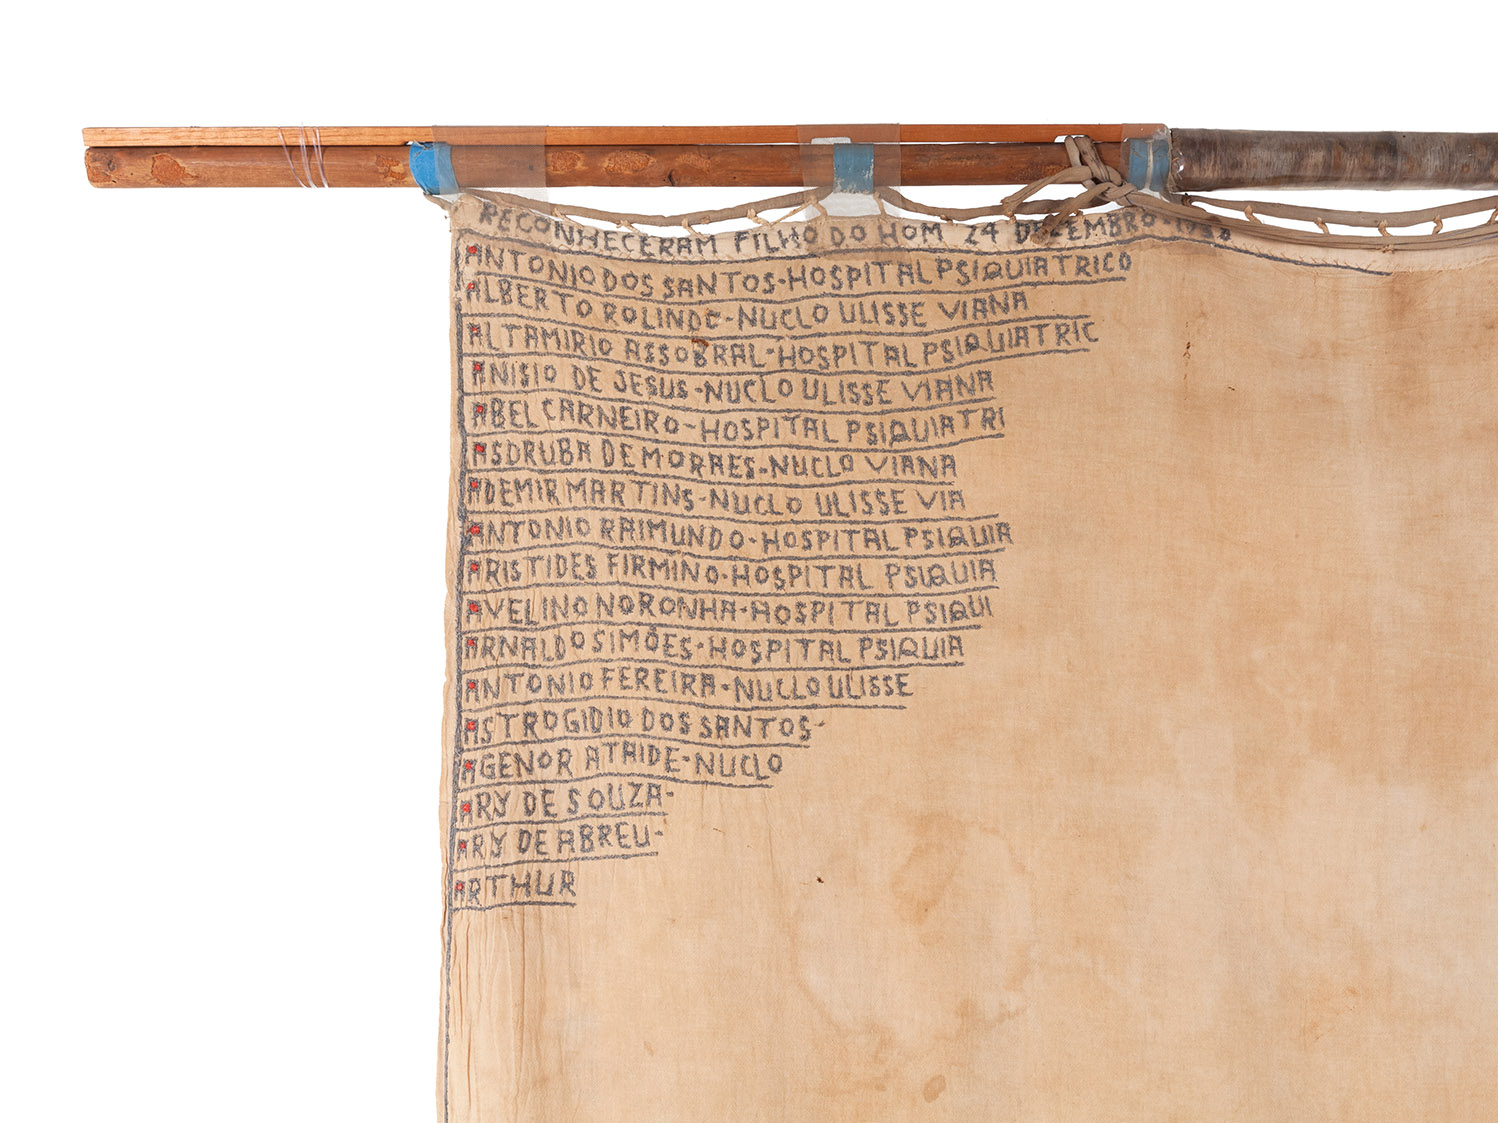 RECONHECERAM FILHO DO HOM 24 DEZEMBRO 1938
ANTONIO DOS SANTOS-HOSPITAL PSIQUIATRICO
ALBERTO ROLINDO-NUCLO ULISSE VIANA
ALTAMIRIO ASSOBRAL-HOSPITAL PSIQUIATRIC
ANISIO DE JESUS-NUCLO ULISSE VIANA
ABEL CARNEIRO-HOSPITAL PSIQUIATRI
ASDRUBA DE MORAES-NUCLO VIANA
ADEMIR MARTINS-NUCLO ULISSE VIA
ANTONIO RAIMUNDO-HOSPITAL PSIQUIA
ARISTIDES FIRMINO-HOSPITAL PSIQUIA
AVELINO NORONHA-HOSPITAL PSIQUI
ARNALDO SIMÕES-HOSPITAL PSIQUIA
ANTONIO FEREIRA-NUCLO ULISSE
ASTROGIDIO DOS SANTOS-
AGENOR ATAIDE-NUCLO
ARY DE SOUZA-
ARY DE ABREU-
ARTHUR